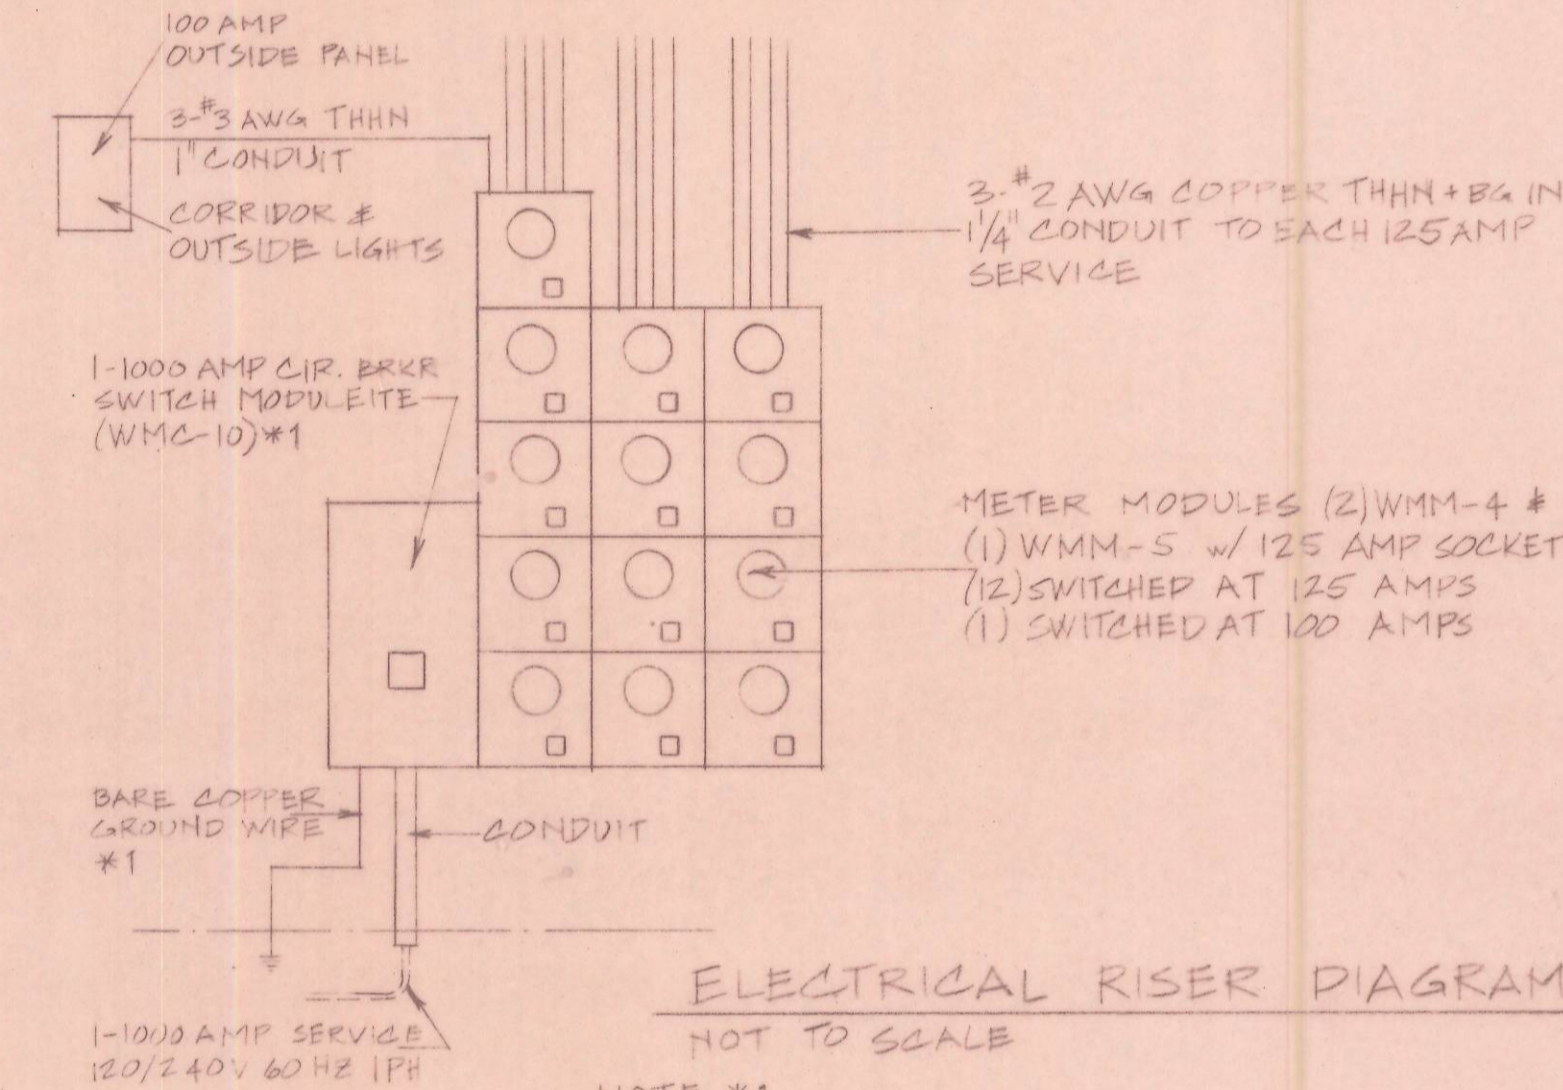 100 AMP
OUTSIDE PANEL
3-#3 AWG THHN
1" CONDUIT
CORRIDOR &
OUTSIDE LIGHTS
3-#2 AWG COPPER THHN + BG IN
1 1/4" CONDUIT TO EACH 125 AMP
SERVICE
1-1000 AMP CIR. BRKR
SWITCH MODULEITE
(WMC-10)*1
METER MODULES (2) WMM-4 &
(1) WMM-5 w/ 125 AMP SOCKET
(12) SWITCHED AT 125 AMPS
(1) SWITCHED AT 100 AMPS
BARE COPPER
GROUND WIRE
*1
CONDUIT
ELECTRICAL RISER DIAGRAM
NOT TO SCALE
1-1000 AMP SERVICE
120/240V 60 HZ 1PH
NOTE *1